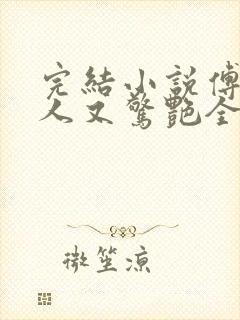 完結小說傅
人又驚艷全
微笙涼